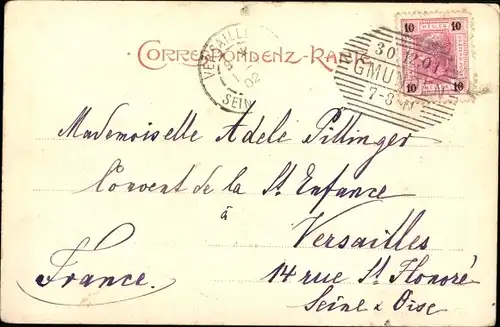 CORRESPONDENZ-KARTE
VERSAILLES
1
02
SEINE
10 10
30.12.01
GMUNDEN
7-8
10 10
Mademoiselle Adele Pillinger
Convent de la St Enfance
à
Versailles
14 rue St Honoré
Seine & Oise
France.